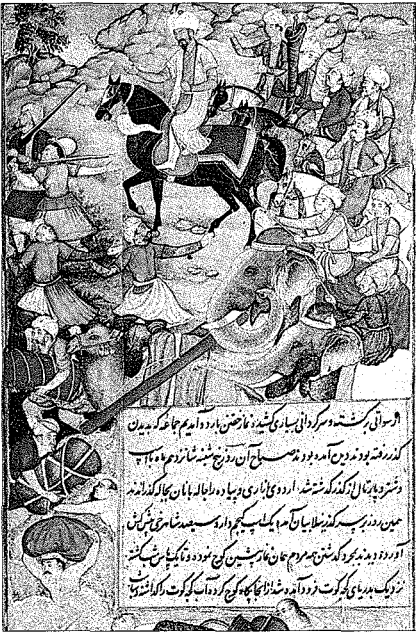 از سواتی برگشته و سرگردانی بسیاری کشیده نماز خفتن باردو آمدیم جماعه که بدیدن
گذر رفته بودند دیدن آمده بودند صباح آن روز پنجشنبه شانزدهم ماه باسپ
و شتر و بارتال از گذر گذشته شد اردوی بازاری و پیاده را جاله بانان بجاله گذراندند
همین روز بر سر گذر نیلابیان آمده یک اسپ کیچم داری سیصد شاهرخی پیشکش
آورده دیدند بمجرد گذشتن همه مردم همان نماز پیشین کوچ نموده و تا یک پاس شب گذشته
نزدیک بدریای کچه کوت فرود آمده شد از آنجا پگاه کوچ کرده آب کچه کوت را گذاشته